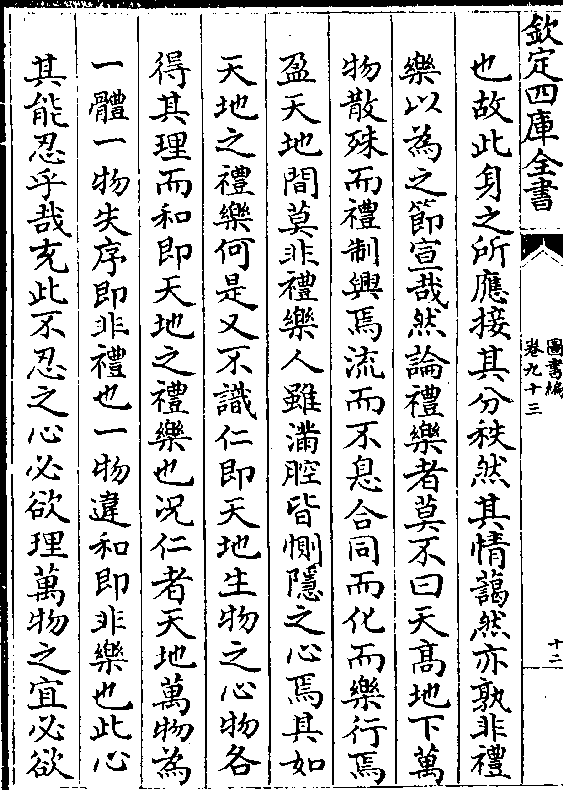 欽定四庫全書
圖書編
卷九十三
十二
也故此身之所應接其分秩然其情藹然亦孰非禮
樂以為之節宣哉然論禮樂者莫不曰天髙地下萬
物散殊而禮制興焉流而不息合同而化而樂行焉
盈天地間莫非禮樂人雖滿腔皆惻隱之心焉其如
天地之禮樂何是又不識仁即天地生物之心物各
得其理而和即天地之禮樂也况仁者天地萬物為
一體一物失序即非禮也一物違和即非樂也此心
其能忍乎哉充此不忍之心必欲理萬物之宜必欲